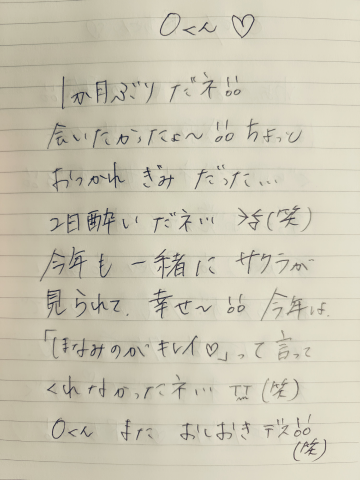 Oくん ♡
1か月ぶりだネ!!
会いたかったよ〜!! ちょっと
おつかれぎみだった…
2日酔いだネ… (笑)
今年も一緒にサクラが
見られて、幸せ〜!! 今年は、
「ほなみのがキレイ♡」って言って
くれなかったネ… (笑)
Oくん また おしおきデス!!
(笑)